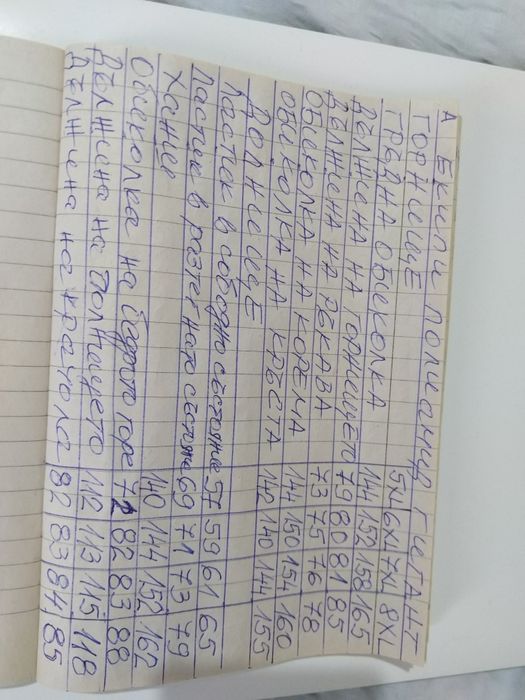 А Екипи полиамид ГИГАНТ
ГОРНИЩЕ 5XL 6XL 7XL 8XL
ГРЪДНА ОБИКОЛКА 144 152 158 165
ДЪЛЖЕНА НА ГОРНИЩЕТО 79 80 81 85
ДЪЛЖЕНА НА РЪКАВА 73 75 76 78
ОБИКОЛКА НА КОРЕМА 144 150 154 160
ОБИКОЛКА НА КРЪСТА 142 140 144 155
ДОЛНИЩЕ
Ластик в свободно състояние 57 59 61 65
Ластик в разтегнато състояние 69 71 73 79
Ханш 140 144 152 162
Обиколка на бедрото горе 82 83 88
Дължена на долнището 112 113 115 118
Дължена на крачола 82 83 84 85